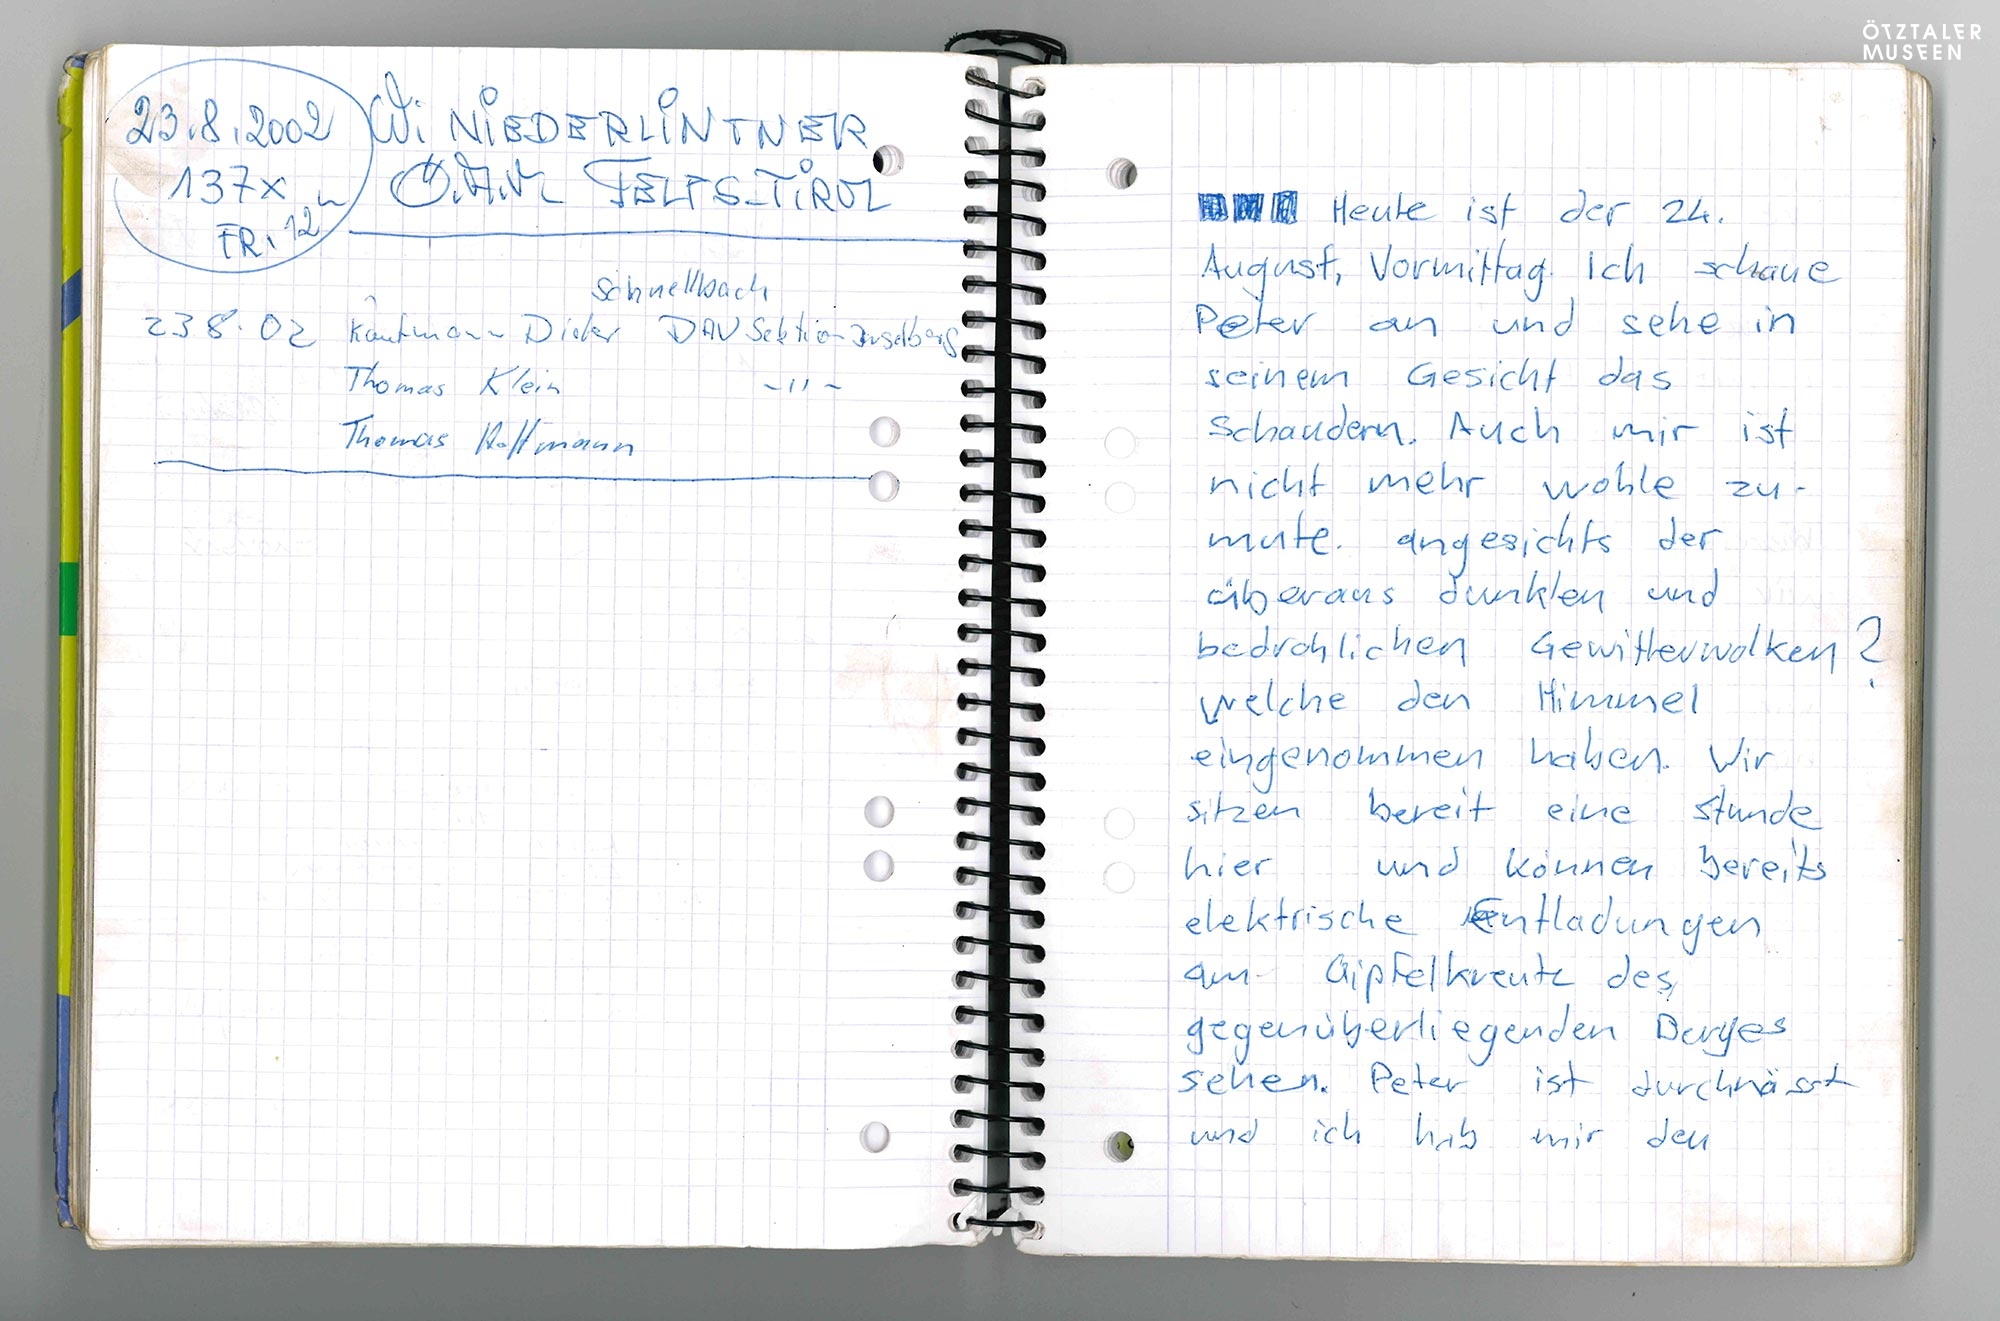 ÖTZTALER
MUSEEN
23.8.2002
137x
FR. 12 h
Wi NiEDERLiNTNER
Ö.A.V. TELFS-TiROL
Schnellbach
23 8. 02 Kaufmann Dieter DAV Sektion Inselberg
Thomas Klein -"-
Thomas Hoffmann
Heute ist der 24.
August, Vormittag. Ich schaue
Peter an und sehe in
seinem Gesicht das
Schaudern. Auch mir ist
nicht mehr wohle zu-
mute. angesichts der
überaus dunklen und
bedrohlichen Gewitterwolken ?
welche den Himmel
eingenommen haben. Wir
sitzen bereit eine Stunde
hier und können bereits
elektrische Entladungen
am Gipfelkreutz des
gegenüberliegenden Berges
sehen. Peter ist durchnässt
und ich hab mir den